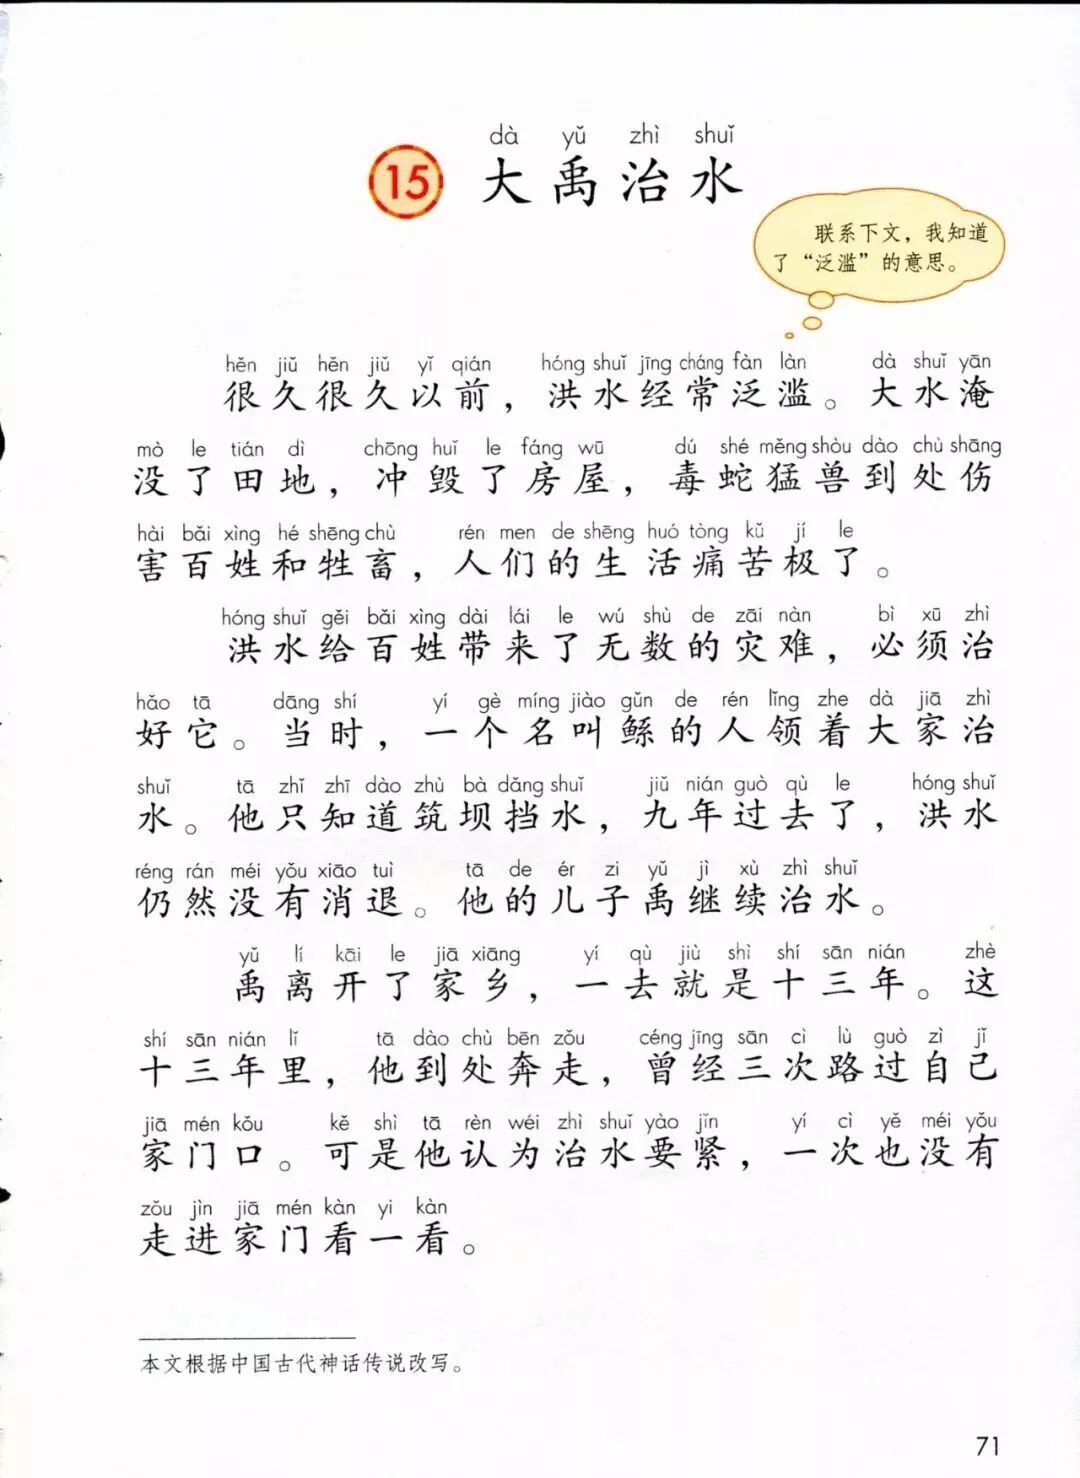 dà yǔ zhì shuǐ
15 大禹治水
联系下文，我知道
了“泛滥”的意思。
hěn jiǔ hěn jiǔ yǐ qián hóng shuǐ jīng cháng fàn làn dà shuǐ yān
很久很久以前，洪水经常泛滥。大水淹
mò le tián dì chōng huǐ le fáng wū dú shé měng shòu dào chù shāng
没了田地，冲毁了房屋，毒蛇猛兽到处伤
hài bǎi xìng hé shēng chù rén men de shēng huó tòng kǔ jí le
害百姓和牲畜，人们的生活痛苦极了。
hóng shuǐ gěi bǎi xìng dài lái le wú shù de zāi nàn bì xū zhì
洪水给百姓带来了无数的灾难，必须治
hǎo tā dāng shí yí gè míng jiào gǔn de rén lǐng zhe dà jiā zhì
好它。当时，一个名叫鲧的人领着大家治
shuǐ tā zhǐ zhī dào zhù bà dǎng shuǐ jiǔ nián guò qù le hóng shuǐ
水。他只知道筑坝挡水，九年过去了，洪水
réng rán méi yǒu xiāo tuì tā de ér zi yǔ jì xù zhì shuǐ
仍然没有消退。他的儿子禹继续治水。
yǔ lí kāi le jiā xiāng yí qù jiù shì shí sān nián zhè
禹离开了家乡，一去就是十三年。这
shí sān nián lǐ tā dào chù bēn zǒu céng jīng sān cì lù guò zì jǐ
十三年里，他到处奔走，曾经三次路过自己
jiā mén kǒu kě shì tā rèn wéi zhì shuǐ yào jǐn yí cì yě méi yǒu
家门口。可是他认为治水要紧，一次也没有
zǒu jìn jiā mén kàn yi kàn
走进家门看一看。
本文根据中国古代神话传说改写。
71